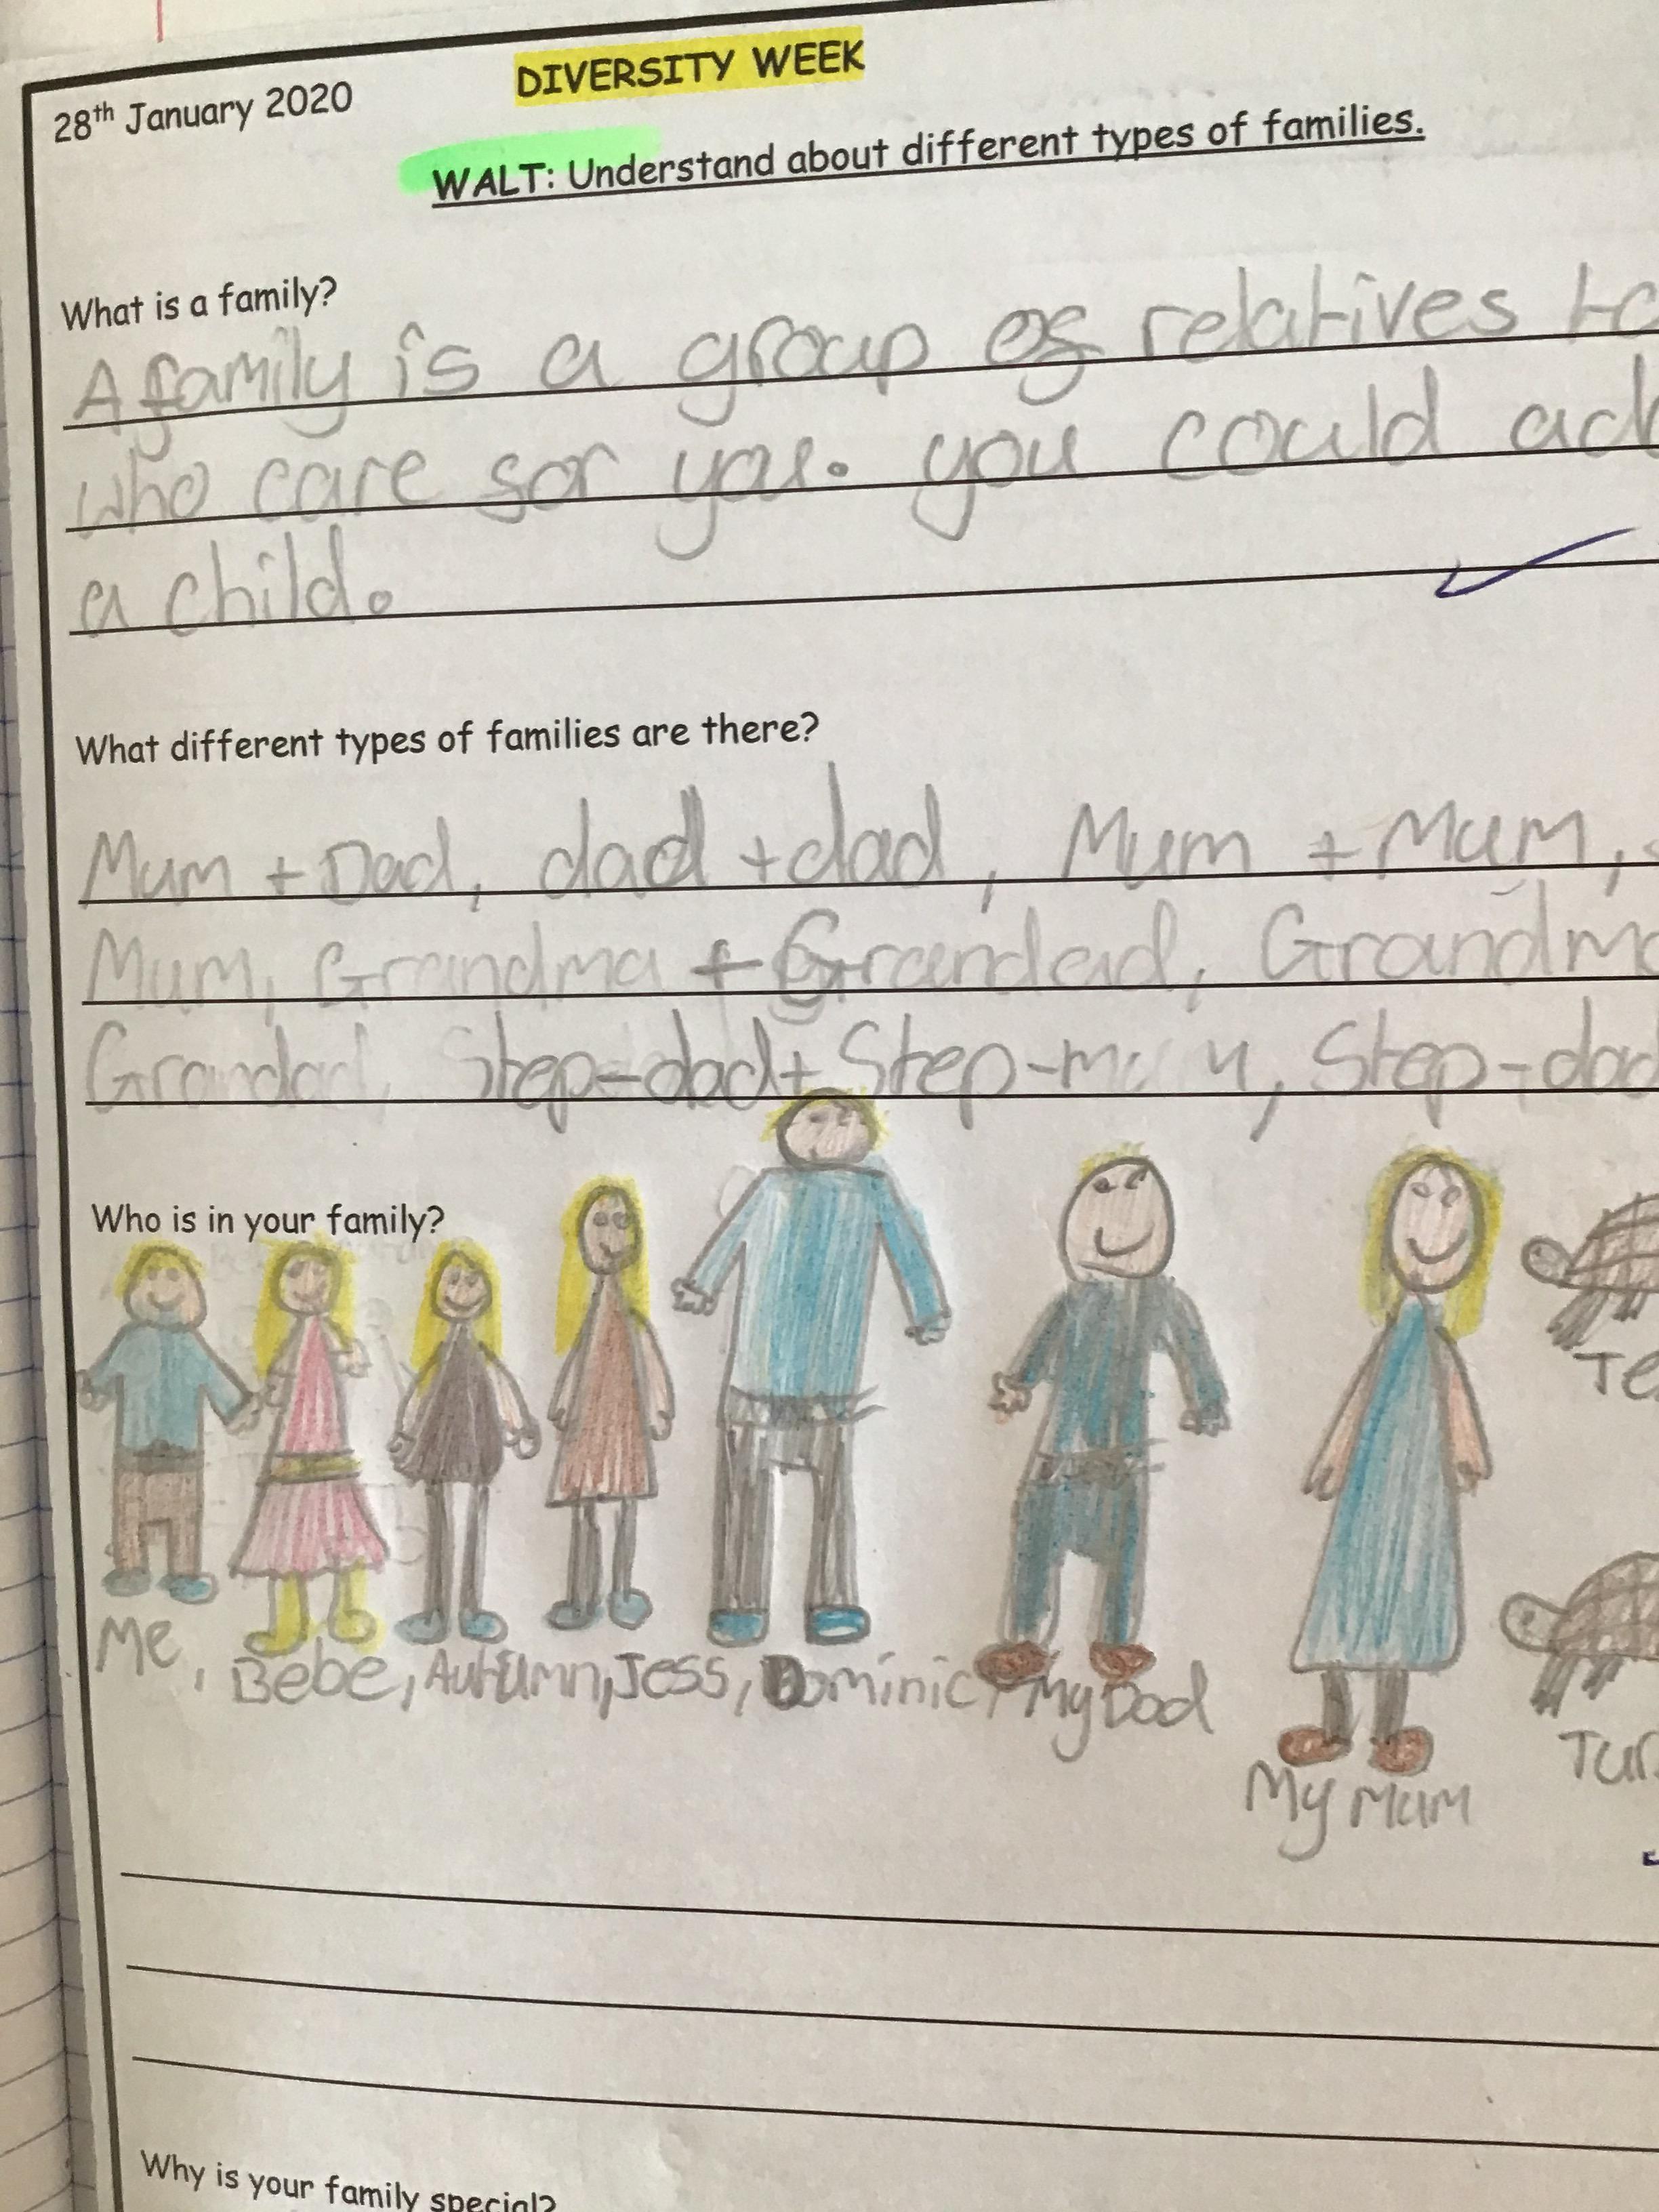 28th January 2020
DIVERSITY WEEK
WALT: Understand about different types of families.
What is a family?
A family is a group of relatives
who care for you. you could
a child.
What different types of families are there?
Mum + Dad, dad + dad, Mum + Mum,
Mum, Grandma + Grandad, Grandma
Grandad, Step-dad + Step-mum, Step-dad
Who is in your family?
Me, Bebe, Autumn, Jess, Dominic, My Dad
My Mum
Why is your family special?